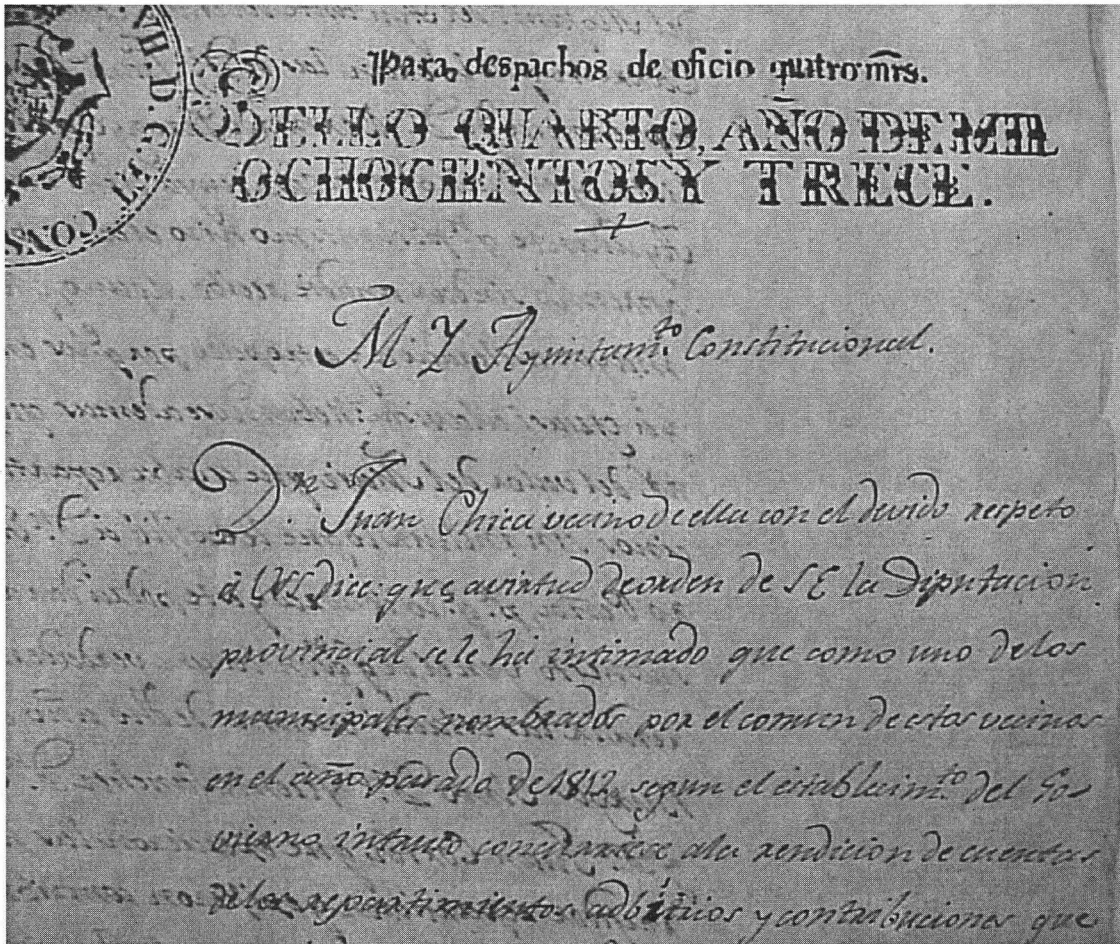 VII. D. G. Y L. CONS
Para despachos de oficio quatro mrs.
SELLO QUARTO, AÑO DE MIL
OCHOCENTOS Y TRECE.
M Y Ayuntam.to Constitucional.
Dn Juan Chica vecino de ella con el devido respeto
á VS dice: que a virtud de orden de SE la Diputacion
provincial se le ha intimado que como uno de los
municipales nombrados por el comun de estos vecinos
en el año pasado de 1812 segun el establecim.to del Go-
vierno intruso concurriese ala rendicion de cuentas
de los repartimientos adbitrios y contribuciones que